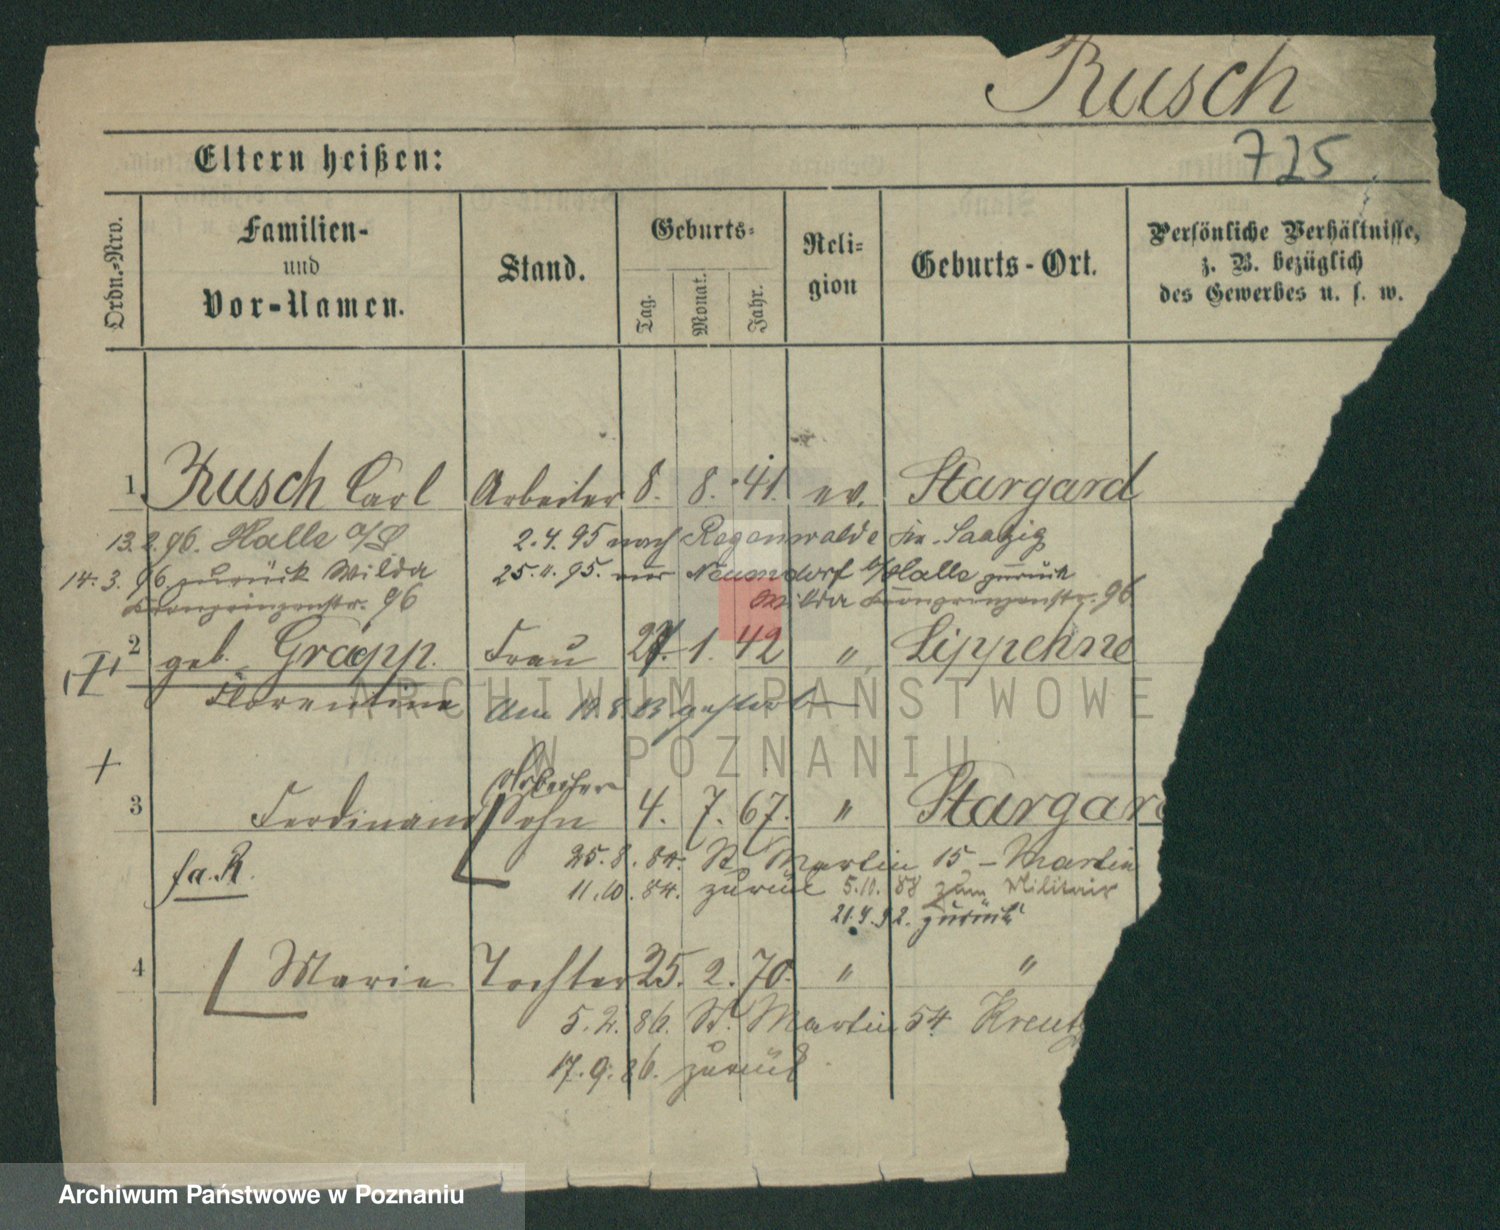 Rusch
725
Eltern heißen:
Ordn.-Nro.
Familien-
und
Vor-Namen.
Stand.
Geburts-
Tag.
Monat.
Jahr.
Reli-
gion
Geburts-Ort.
Persönliche Verhältnisse,
z. B. bezüglich
des Gewerbes u. s. w.
1 Rusch Carl Arbeiter 8. 8. 41. ev. Stargard
13.2.96. Halle a/S 2.4.95 nach Regenwalde Kr. Saatzig
14.3.96 zurück Wilda 25.11.95. von Neuendorf b/Halle zurück
Kronprinzenstr. 96 Wilda Kronprinzenstr. 96
2 geb. Gräpp. Frau 27. 1. 42 " Lippehne
Florentine Am 18.8.83 gestorben
Arbeiter
3 Ferdinand Sohn 4. 7. 67. " Stargard
25.8.84. St. Martin 15 - Martin
fa. R. 11.10.84. zurück 5.10.88 zum Militair
21.9.92. zurück
4 Marie Tochter 25. 2. 70. " "
5.2.86. St. Martin 54 Kreutz
17.9.86. zurück
ARCHIWUM PAŃSTWOWE
W POZNANIU
Archiwum Państwowe w Poznaniu